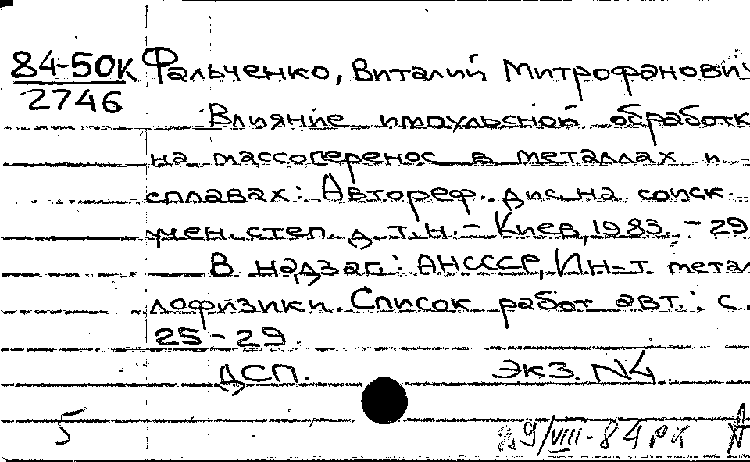 84-50К Фальченко, Виталий Митрофанович
2746
Влияние импульсной обработк
на массоперенос в металлах и
сплавах: Автореф. дис. на соиск.
учен. степ. д. т. н. - Киев, 1983. - 29
В надзаг: АН СССР, Ин-т. метал
лофизики. Список работ авт.: с.
25-29.
ДСП. Экз. N4
5 29/VIII-84 РК А